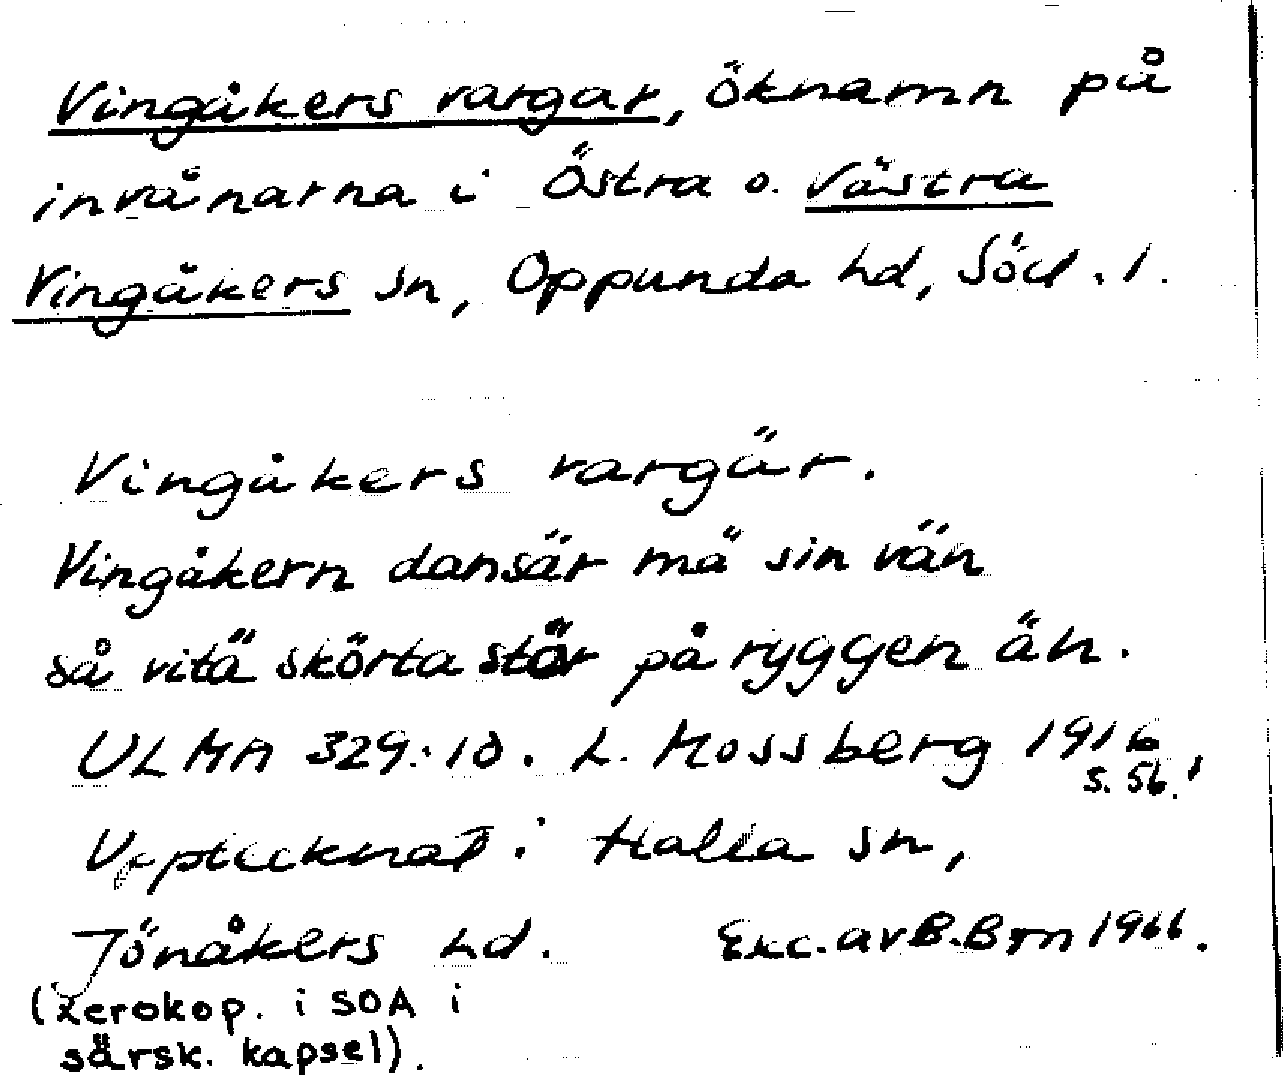 Vingåkers vargar, öknamn på
invånarna i Östra o. Västra
Vingåkers sn, Oppunda hd, Söd. l.
Vingåkers vargär.
Vingåkern dansär mä sin vän
så vitä skörta stör på ryggen än.
ULMA 329:10. L. Mossberg 1916,
s. 56.
Upptecknat i Halla sn,
Jönåkers hd. Exc. av B. Bm 1966.
(Xerokop. i SOA i
särsk. kapsel).